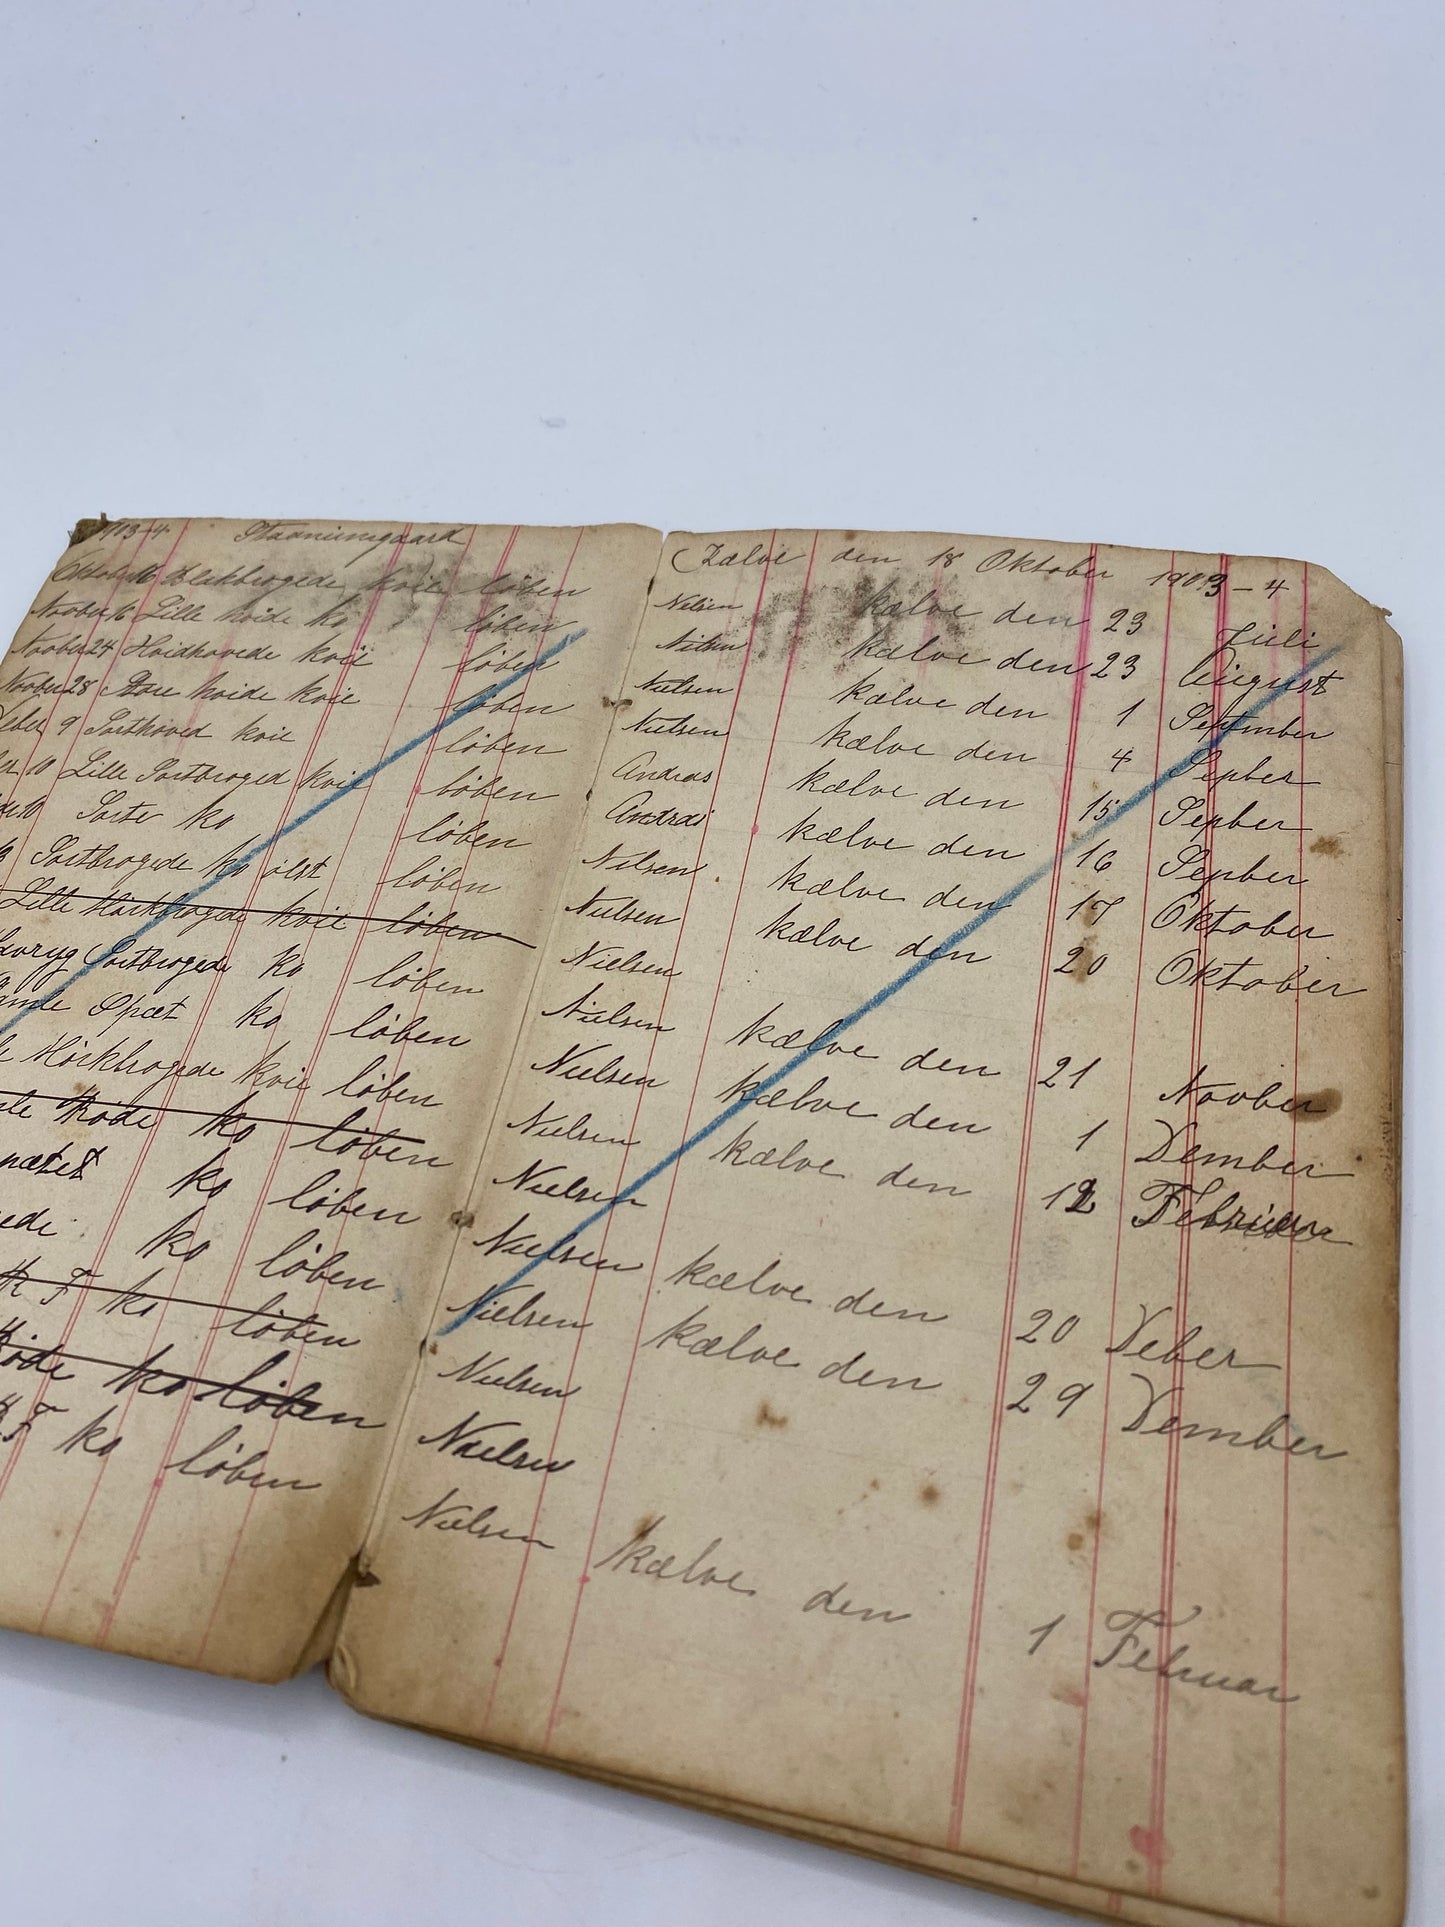 1903-4 Staaniingaard
Oktob 16 Blakbrogede kvie löben
Noober 16 Lille hvide ko löben
Noober 24 Hvidhovede kvie löben
Noober 28 Store hvide kvie löben
9 Sorthoved kvie löben
10 Lille Sortbroged kvie löben
10 Sorte ko löben
Sortbrogede ko ölst löben
Lille Mörkbrogede kvie löben
Sortbrogede ko löben
Spæt ko löben
Mörkbrogede kvie löben
Röde ko löben
ko löben
ko löben
F ko löben
Röde ko löben
F ko löben
Kælve den 18 Oktober 1903-4
Nilsen kælve den 23 Juli
Nilsen kælve den 23 August
Nielsen kælve den 1 September
Nielsen kælve den 4 Sepber
Andras kælve den 15 Sepber
Andras kælve den 16 Sepber
Nilsen kælve den 17 Oktober
Nielsen kælve den 20 Oktober
Nielsen
Nielsen kælve den 21 Noober
Nielsen kælve den 1 Dember
Nielsen kælve den 12 Februar
Nielsen
Nielsen kælve den 20 Deber
Nielsen kælve den 29 Dember
Nielsen
Nielsen
Nielsen kælve den 1 Februar